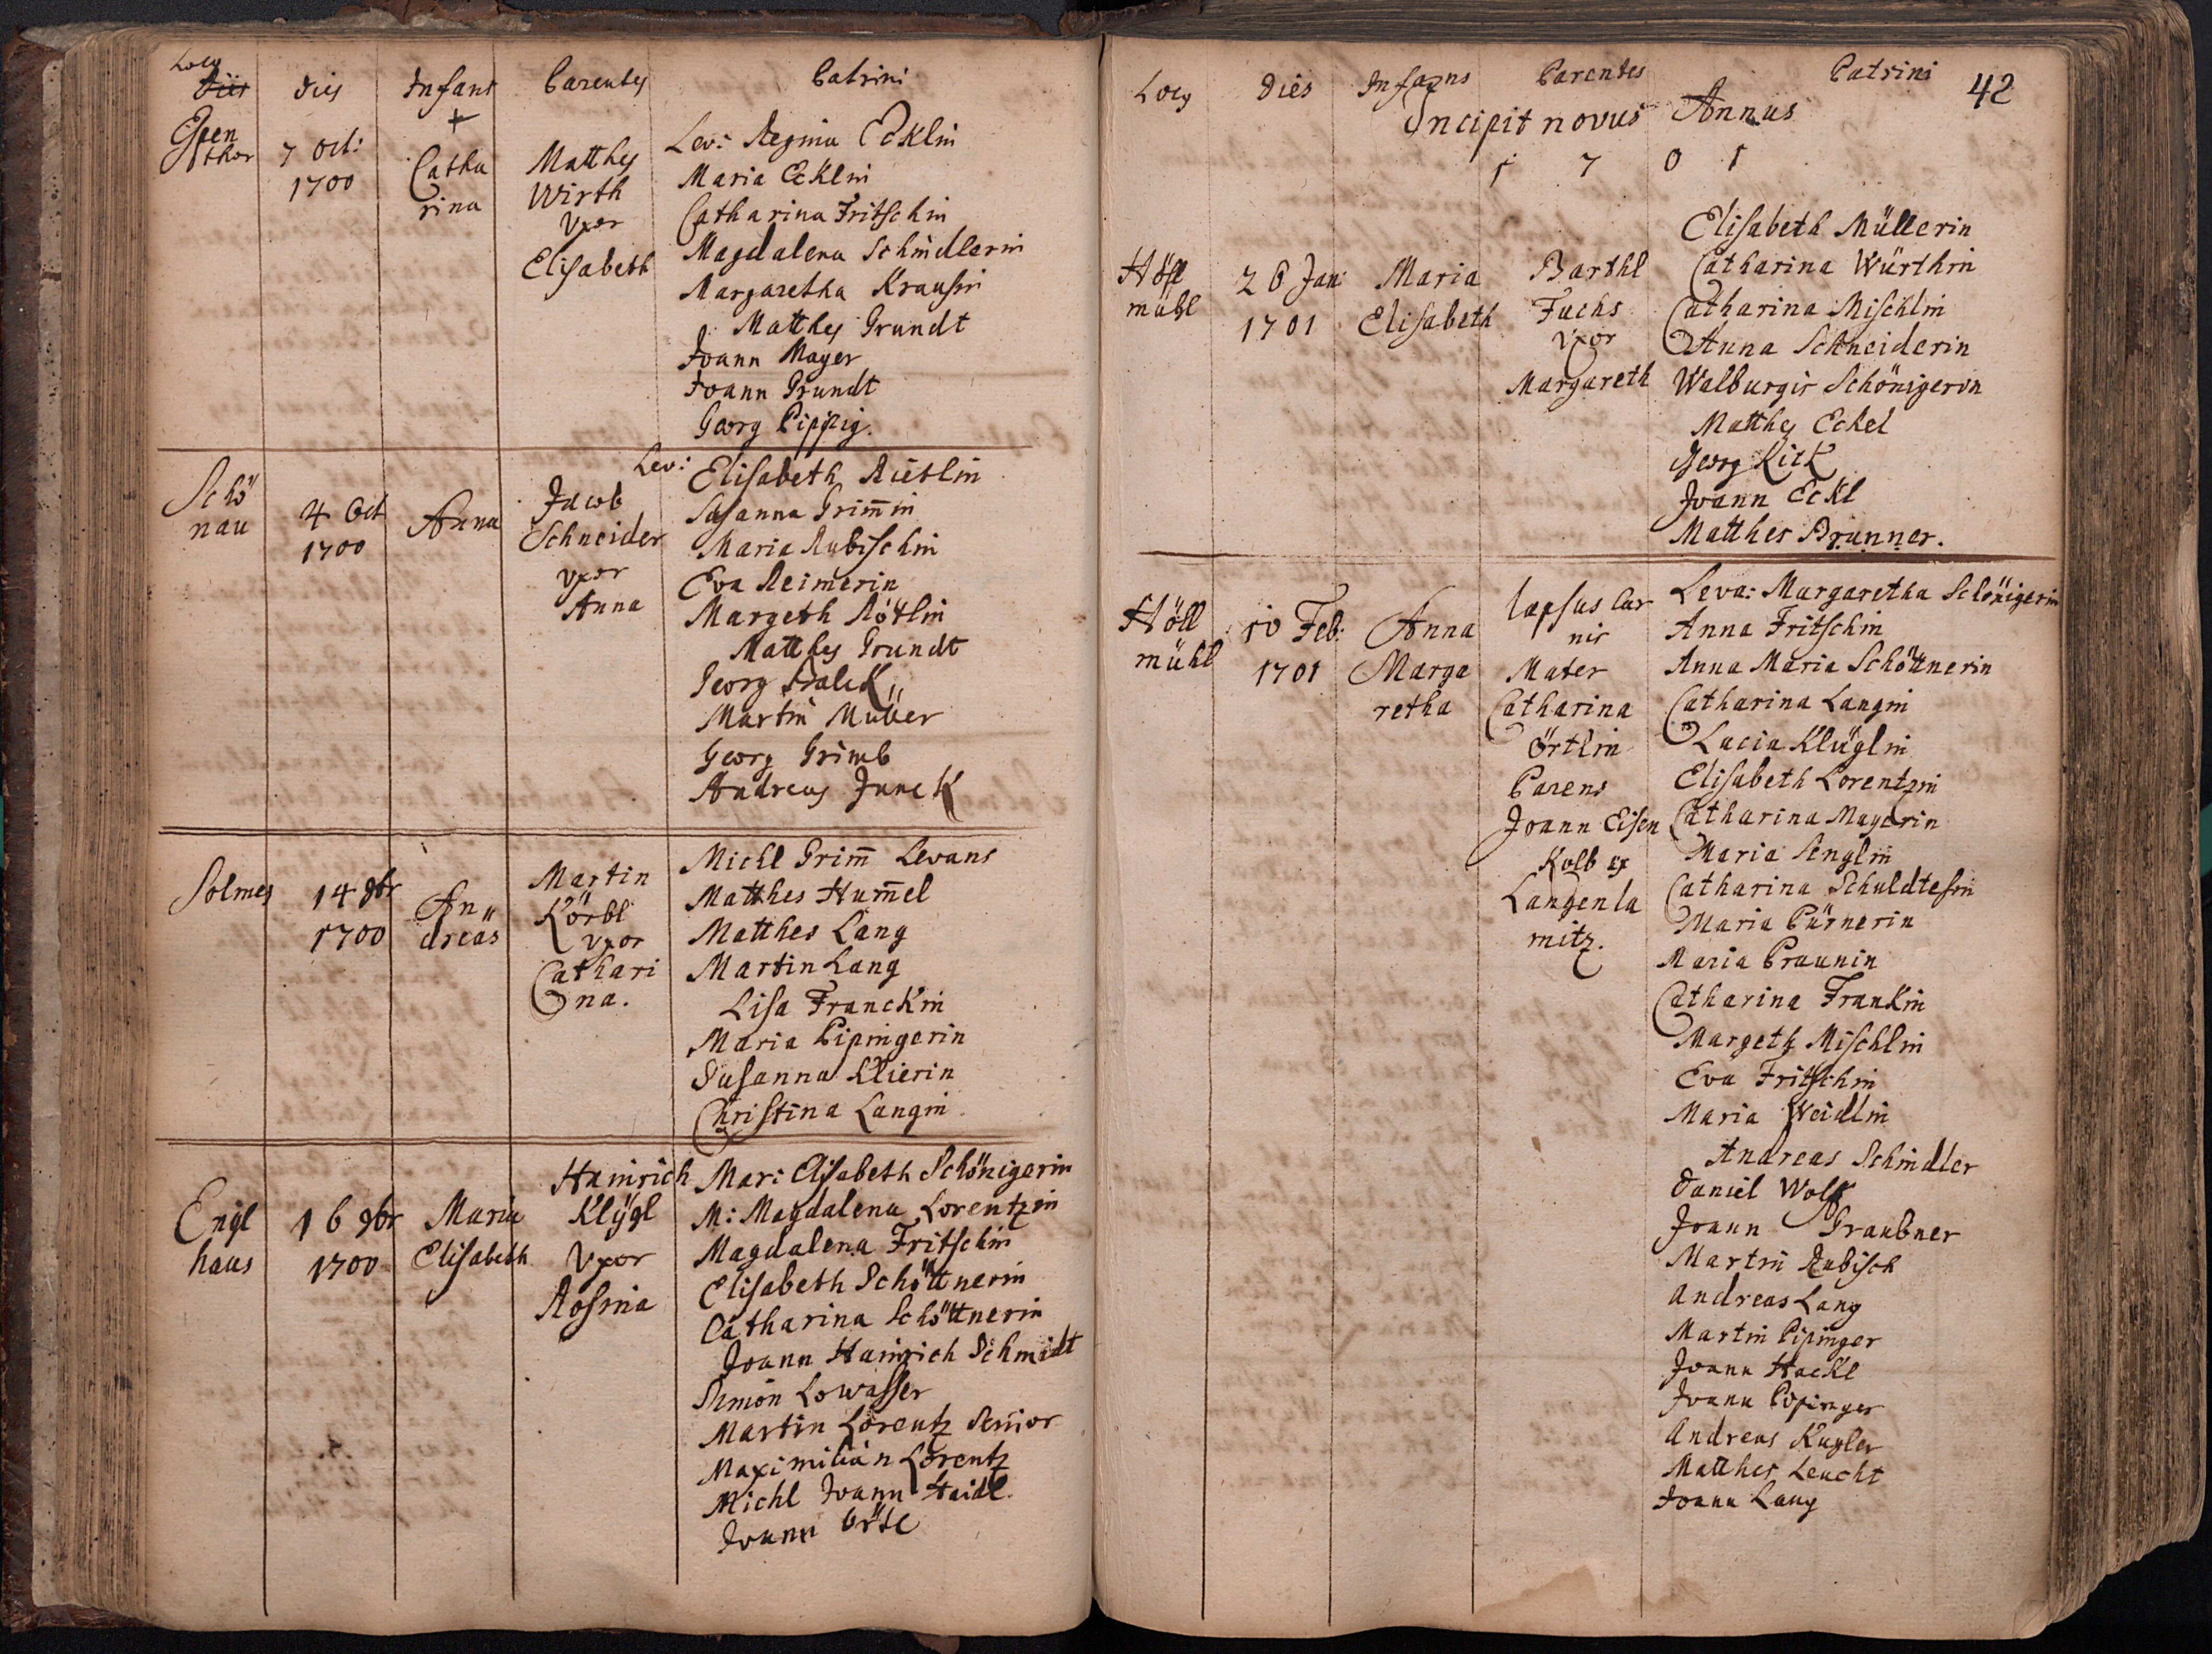 Locy
Dies dies Infans Parentes Patrini
+
Espen
thor
7 Oct:
1700
Catha
rina
Matthes
Wirth
Vxor
Elisabeth
Lev: Regina Ecklin
Maria Ecklin
Catharina Fritschin
Magdalena Schindlerin
Margaretha Krausin
Matthes Grundt
Joann Mayer
Joann Grundt
Georg Pippig.
Schö
nau
4 Oct
1700
Anna
Jacob
Schneider
vxor
Anna
Lev: Elisabeth Rietlin
Susanna Grim̄in
Maria Rubischin
Eva Reimerin
Margeth Rötlin
Matthes Grundt
Georg
Martin Müller
Georg Grimb
Andreas Junck
Solmes
14 9br
1700
An
dreas
Martin
Körbl
vxor
Cathari
na.
Michl Grim̄ Levans
Matthes Hum̄el
Matthes Lang
Martin Lang
Lisa Franckin
Maria Pipingerin
Susanna Klierin
Christina Langin
Engl
haus
16 9br
1700
Maria
Elisabeth
Hainrich
Klügl
Vxor
Rosina
Mar: Elisabeth Schönigerin
M: Magdalena Lorentzin
Magdalena Fritschin
Elisabeth Schöttnerin
Catharina Schöttnerin
Joann Hainrich Schmidt
Simon Lowasser
Martin Lorentz Senior
Maximilian Lorentz
Michl Joann Haidl
Joann Örtl
Locy Dies Infans Parentes Patrini 42
Incipit novus Annus
1 7 0 1
Höll
mühl
26 Jan
1701
Maria
Elisabeth
Barthl
Fuchs
Vxor
Margareth
Elisabeth Müllerin
Catharina Würthin
Catharina Mischlin
Anna Schneiderin
Walburgis Schönigerin
Matthes Eckel
Georg Kick
Joann Eckl
Matthes Brunner.
Höll
mühl
10 Feb:
1701
Anna
Marga
retha
lapsus Car
nis
Mater
Catharina
Örtlin
Parens
Joann Eisen
Kolb ex
Langenla
mitz.
Leva: Margaretha Schönigerin
Anna Fritschin
Anna Maria Schöttnerin
Catharina Langin
Lucia Klüglin
Elisabeth Lorentzin
Catharina Mayerin
Maria Senglin
Catharina Schuldtesin
Maria Pürnerin
Maria Praunin
Catharina Frankin
Margeth Mischlin
Eva Fritschin
Maria Weidlin
Andreas Schindler
Daniel Wolf
Joann Graubner
Martin Rubisch
Andreas Lang
Martin Pipinger
Joann Hackl
Joann Pipinger
Andreas Kugler
Matthes Leucht
Joann Lang